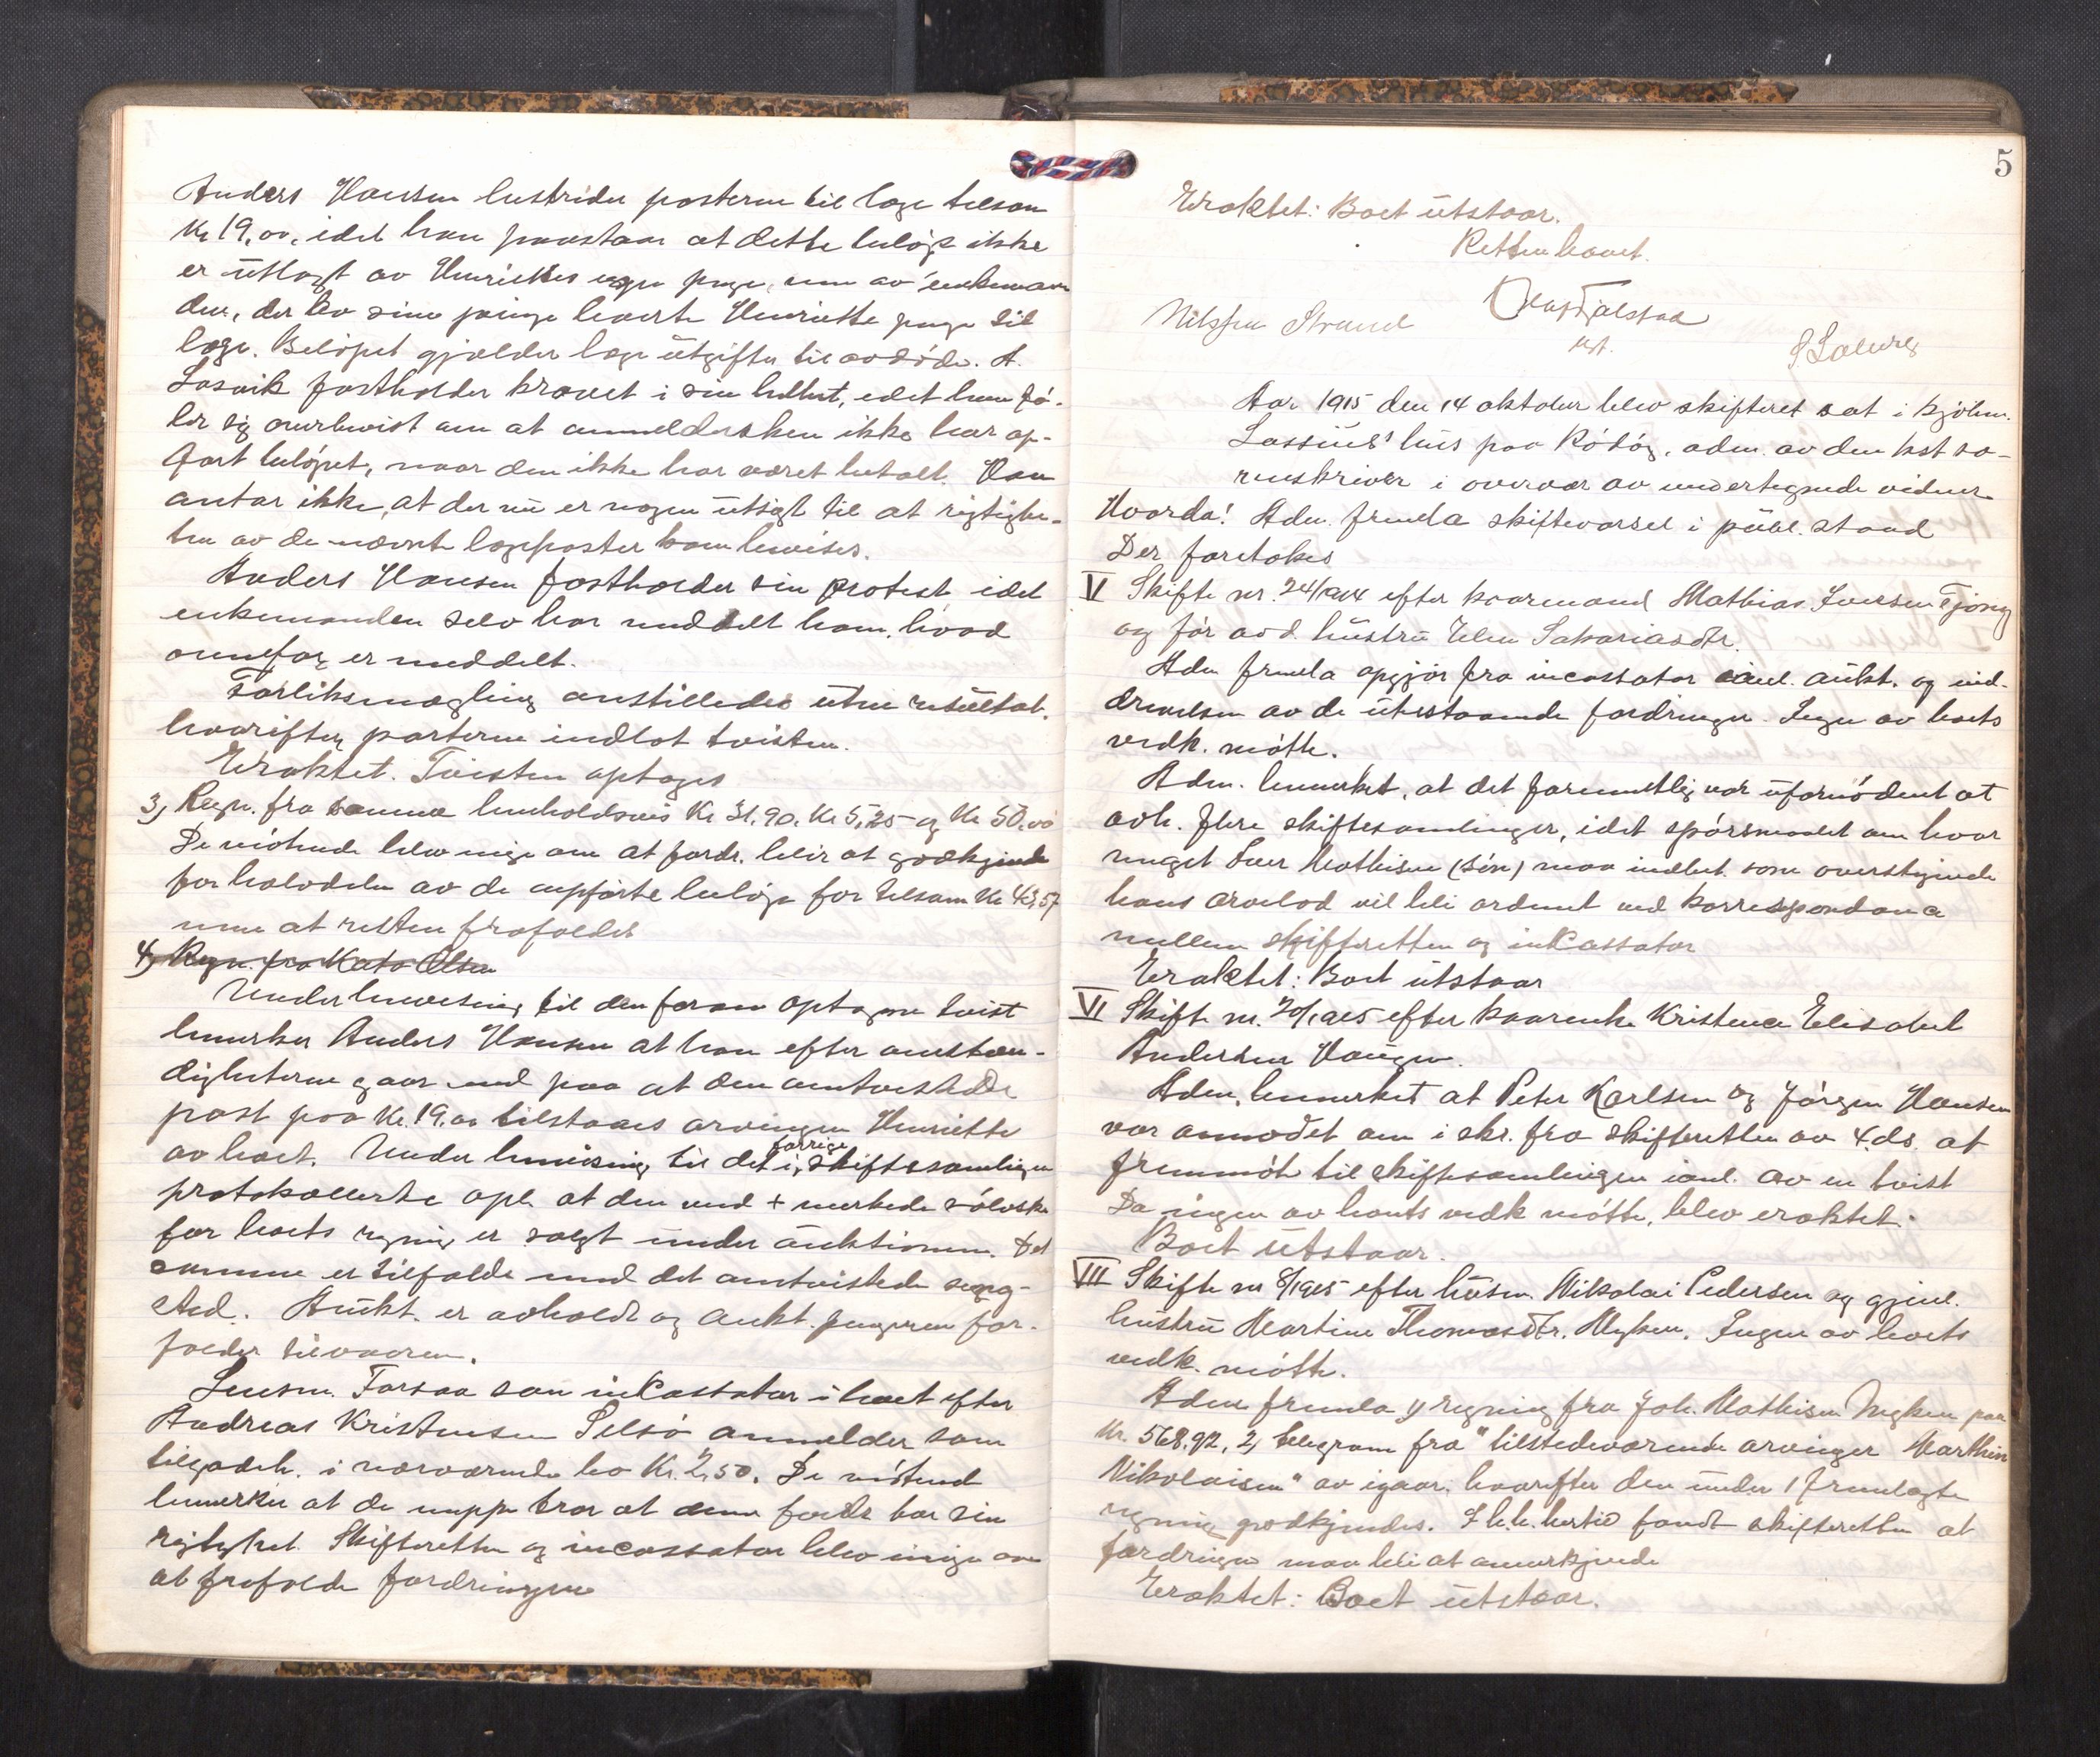 Anders Hansen bestrider posterne til læge tilsam
Kr 19,00, idet han paastaar at dette beløp ikke
er utlagt av Henriettes egne penge, men av enkeman
den, der lov sine penge leverte Henriette penge til
læge. Beløpet gjælder læge utgifter til avdøde. A.
Losvik fastholder kravet i sin helhet, idet han fø-
ler sig overbevist om at anmeldersken ikke har op-
ført beløpet, naar den ikke har været betalt. Han
antar ikke, at der nu er nogen utsigt til at rigtighe-
ten av de nævnte lægeposter kan bevises.
Anders Hansen fastholder sin protest idet
enkemanden selv har meddelt ham, hvad
ovenfor er meddelt.
Forliksmægling anstilledes uten resultat,
hvorefter parterne indlot tvisten.
Eraktet. Tvisten optages
3) Regn. fra samme Kr 31,90. Kr 5,25 og Kr 50,00
De møtende blev enige om at fordr. blir at godkjende
for halvdelen av de opførte beløp for tilsam Kr 43,57
mens at resten frafaldes
4) Regn. fra Kato Olsen
Under henvisning til den foran optagne tvist
bemerker Anders Hansen at han efter omstæn-
dighetene gaar med paa at den omtvistede
post paa Kr. 19,00 tilstaaes arvingen Henriette
av boet. Under henvisning til det i forrige skiftesamlingen
protokollerte opl. at den med + merkede sølvske
for boets regning er solgt under auktionen. Det
samme er tilfælde med det omtvistede seng-
sted. Aukt. er avholdt og aukt. pengene for-
falder
Lensm. Forsaa som inkassator i boet efter
Andreas Kristensen Selsø anmelder som
tilgodeh. i nærværende bo Kr. 2,50. De møtend
bemerker at de neppe tror at denne fords har sin
rigtighet. Skifteretten og incassator blev enige om
at frafalde fordringen
5
Eraktet: Boet utstaar.
Retten hævet.
Strand
Aar 1915 den 14 oktober blev skifteret sat i kjøbm.
Lossius' hus paa Rødøy, adm. av den kst so-
renskriver i overvær av undertegnede vidner
Hvorda! Adm. fremla skiftevarsel i publ. stand
Der foretokes
V Skifte nr. 24/1914 efter kaarmand Mathias Iversen Tjong
og før avd. hustru Elen Sakariasdtr.
Adm fremla opgjør fra incassator aukt. og ind-
drivelsen av de utestaaende fordringer. Ingen av boets
vedk. møtte.
Adm. bemerket, at det formentlig var ufornødent at
avh. flere skiftesamlinger, idet spørsmaalet om hvor
meget Iver Mathisen (søn) maa indbet. som overstigende
hans arvelod vil bli ordnet ved korrespondance
mellem skifteretten og inkassator
Eraktet: Boet utstaar
VI Skifte nr. 20/1915 efter kaarenke Kristence Elisabet
Andersen Haugen.
Adm. bemerket at Peter Karlsen og Jørgen Hansen
var anmodet om i skr. fra skifteretten av 4. ds. at
fremmøte til skiftesamlingen av en tvist
Da ingen av boets vedk møtte, blev eraktet:
Boet utstaar.
VII Skifte nr 8/1915 efter husm. Nikolai Pedersen og gjenl.
hustru Martine Thomasdtr. Myken. Ingen av boets
vedk. møtte.
Adm fremla 1) regning fra Joh. Mathisen Myken paa
Kr. 568.92, 2) telegram fra "tilstedeværende arvinger Marthin
Nikolaisen" av igaar, hvorefter den under 1 fremlagte
regning godkjendes. I h.h. hertil fandt skifteretten at
fordringen maa bli at anerkjende
Eraktet: Boet utstaar.